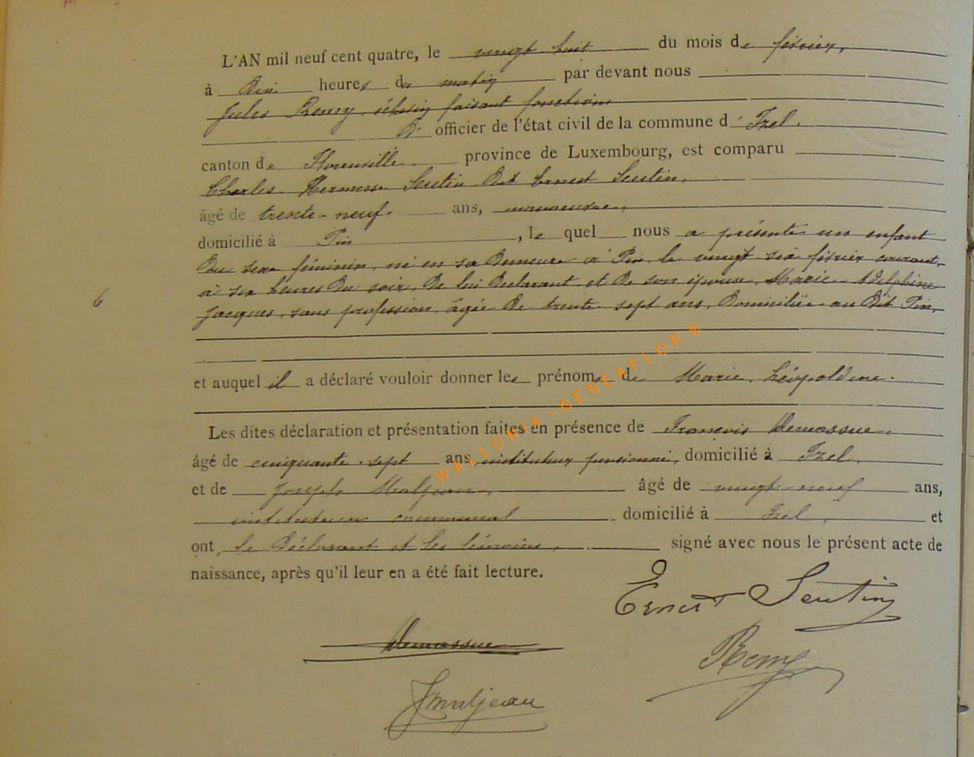 L'AN mil neuf cent quatre, le vingt huit du mois de février,
à dix heures du matin par devant nous
Jules Remy, échevin faisant fonctions
d' officier de l'état civil de la commune d' Izel.
canton de Florenville province de Luxembourg, est comparu
Charles Seutin dit Ernest Seutin,
âgé de trente-neuf ans, manœuvre,
domicilié à Pin, lequel nous a présenté un enfant
du sexe féminin, né en sa demeure à Pin, le vingt six février courant,
à six heures du soir, de lui déclarant et de son épouse Marie Adelphine
Jacques, sans profession, âgée de trente sept ans, domiciliée au dit Pin,
6
et auquel il a déclaré vouloir donner les prénoms de Marie Léopoldine.
Les dites déclaration et présentation faites en présence de François Demassue,
âgé de cinquante-sept ans, instituteur pensionné, domicilié à Izel,
et de Joseph Maljean, âgé de vingt-neuf ans,
instituteur communal domicilié à Izel, et
ont, le déclarant et les témoins, signé avec nous le présent acte de
naissance, après qu'il leur en a été fait lecture.
Ernest Seutin
Demassue
Remy
J Maljean
WALLONIA-GENEAFLOR®